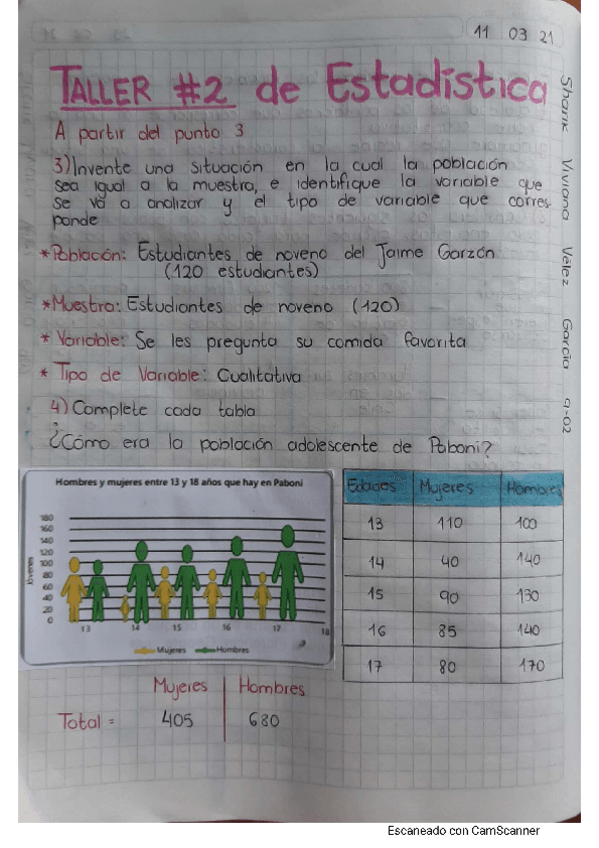 11 03 21
TALLER #2 de Estadística
A partir del punto 3
3) Invente una situación en la cual la población
sea igual a la muestra, e identifique la variable que
se va a analizar y el tipo de variable que corres-
ponde
* Población: Estudiantes de noveno del Jaime Garzón
(120 estudiantes)
* Muestra: Estudiantes de noveno (120)
* Variable: Se les pregunta su comida favorita
* Tipo de Variable: Cualitativa
4) Complete cada tabla
¿Cómo era la población adolescente de Paboni?
Hombres y mujeres entre 13 y 18 años que hay en Paboni
Jóvenes
180
160
140
120
100
80
60
40
20
0
13 14 15 16 17 18
Mujeres Hombres
Edades Mujeres Hombres
13 110 100
14 40 140
15 90 130
16 85 140
17 80 170
Mujeres Hombres
Total = 405 680
Sharik Viviana Vélez García 9-02
Escaneado con CamScanner